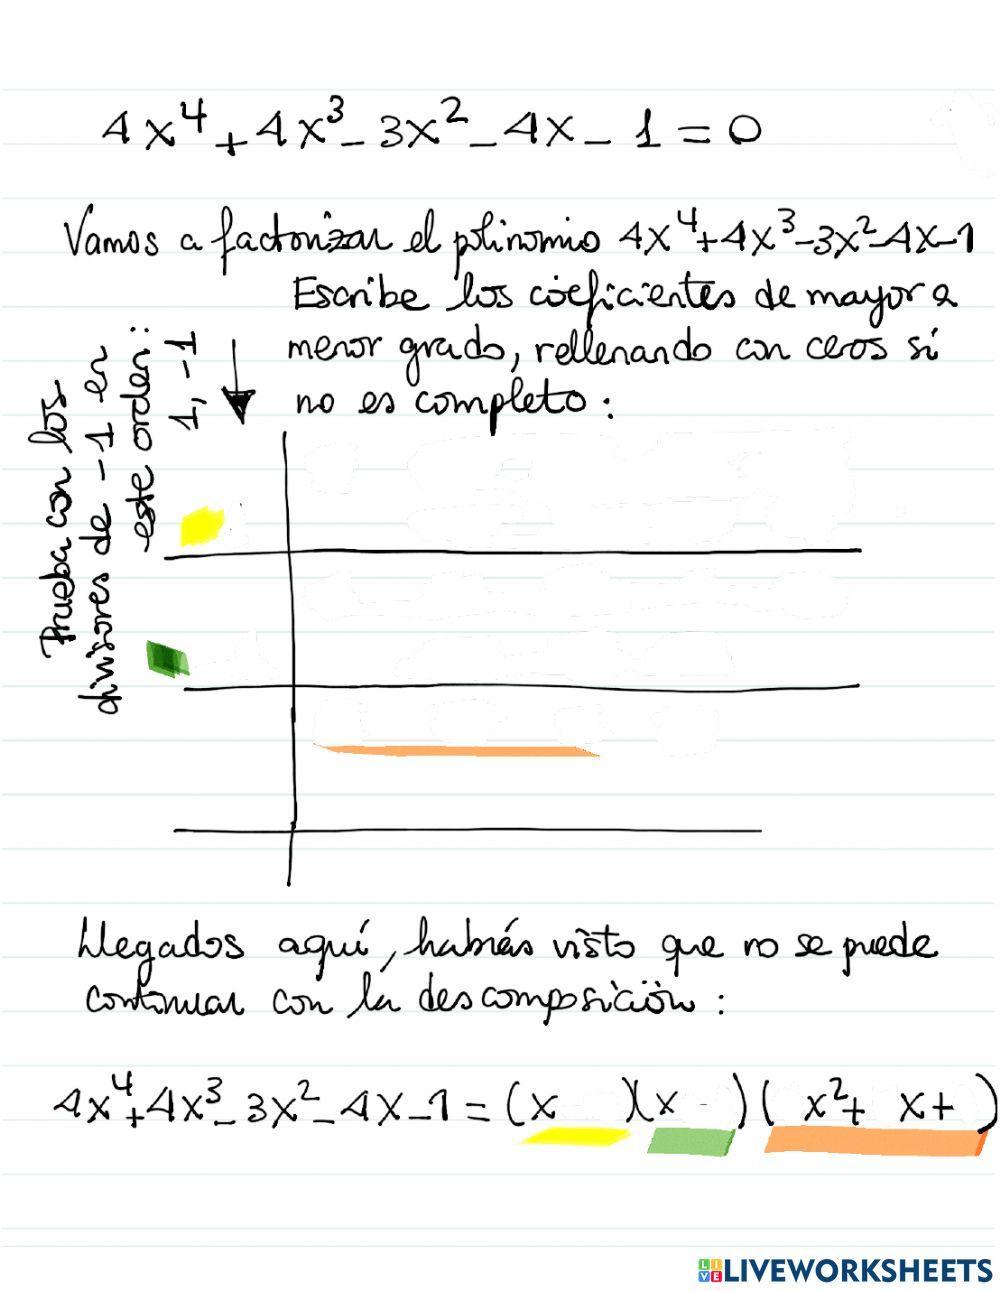 4x⁴+4x³-3x²-4x-1=0
Vamos a factorizar el polinomio 4x⁴+4x³-3x²-4x-1
Escribe los coeficientes de mayor a
menor grado, rellenando con ceros si
no es completo:
Prueba con los
divisores de -1 en
este orden:
1, -1
Llegados aquí, habrás visto que no se puede
continuar con la descomposición:
4x⁴+4x³-3x²-4x-1=(x )(x )( x²+ x+ )
LIVEWORKSHEETS